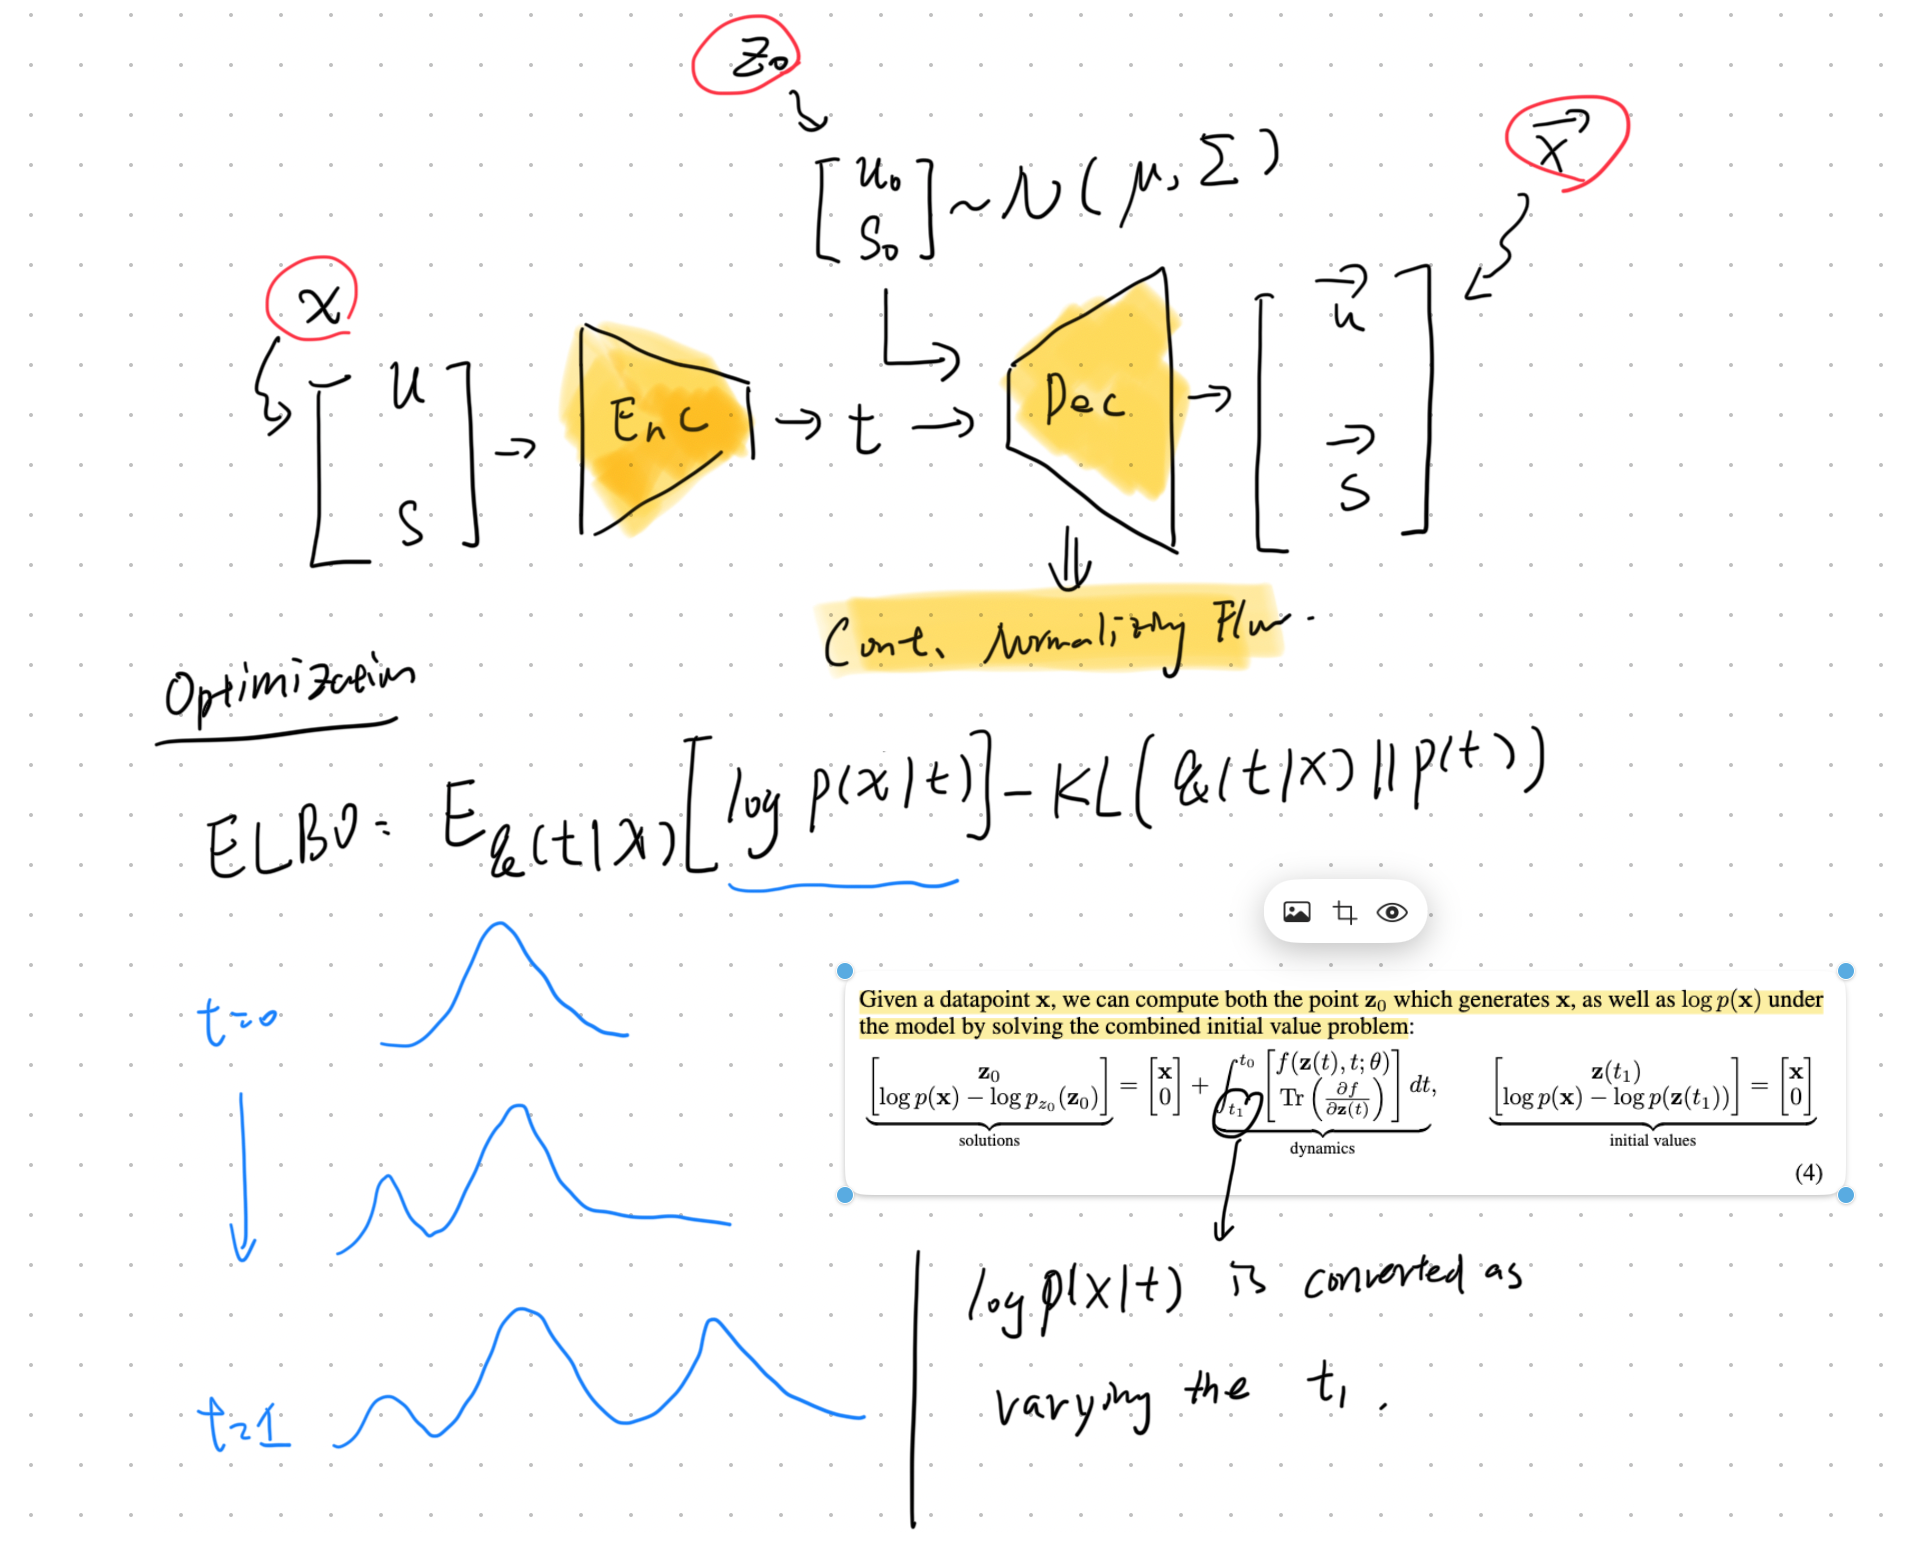 z₀
[u₀ s₀] ~ N(μ, Σ)
x⃗
x
[u s] → Enc → t → Dec → [u⃗ s⃗]
Cont. Normalizing Flow.
Optimization
ELBO = E_q(t|x) [log p(x|t)] - KL(q(t|x) || p(t))
t=0
t=1
Given a datapoint x, we can compute both the point z₀ which generates x, as well as log p(x) under
the model by solving the combined initial value problem:
[z₀ ; log p(x) − log p_z₀(z₀)] = [x ; 0] + ∫_t₁^t₀ [f(z(t), t; θ) ; Tr(∂f/∂z(t))] dt, [z(t₁) ; log p(x) − log p(z(t₁))] = [x ; 0]
solutions dynamics initial values
(4)
log p(x|t) is converted as
varying the t₁.